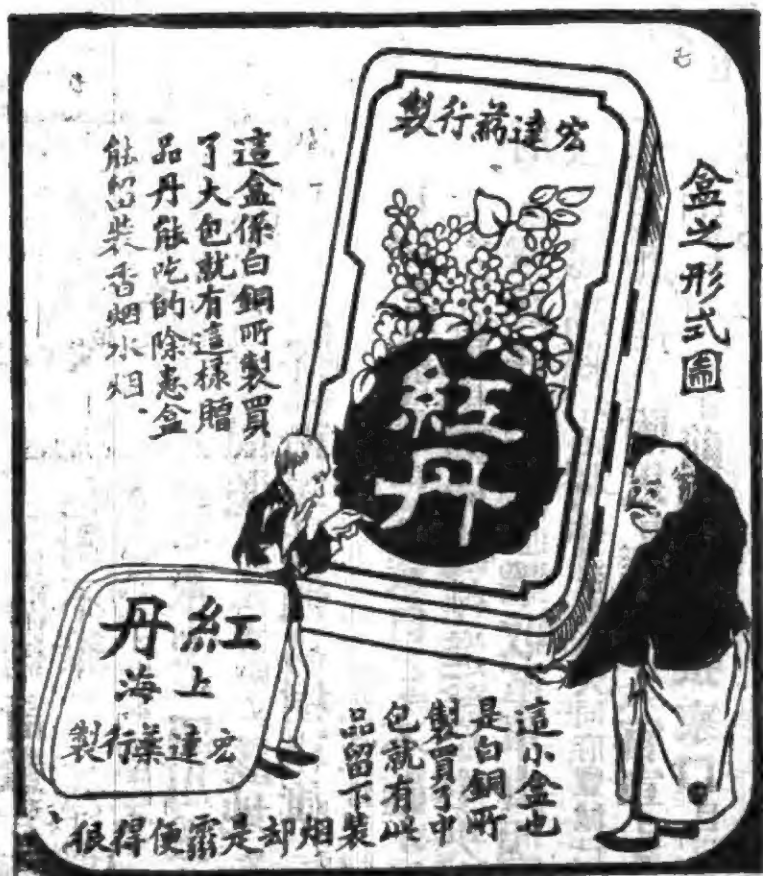 盒之形式圖
宏達葯行製
紅丹
這盒係白銅所製買
了大包就有這樣贈
品丹能吃的除恙盒
能留裝香烟水烟、
紅丹
上海
宏達葯行製
這小盒也
是白銅所
製買了中
包就有此
品留下
裝烟却是靈便得很